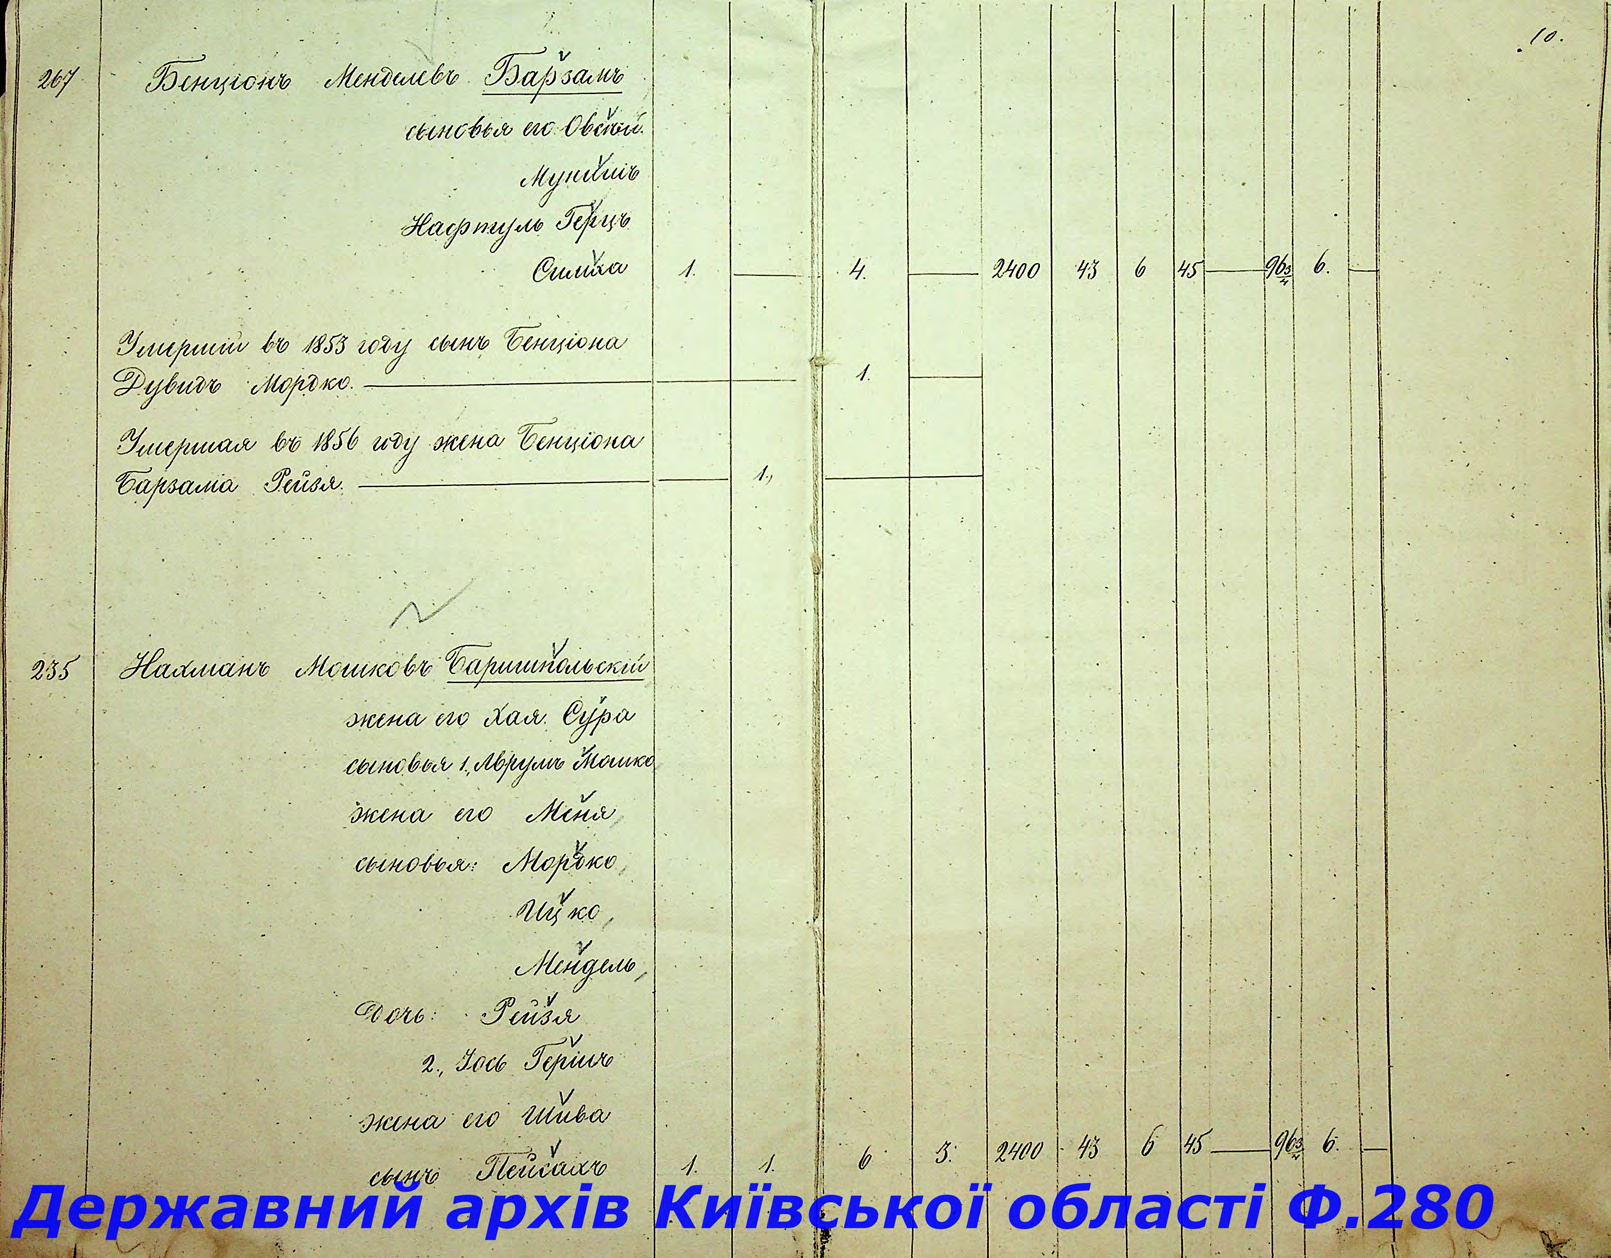 10.
267 Бенціонъ Менделевъ Барзамъ
сыновья его Овсѣй.
Мунишъ
Нафтуль Герцъ
Симха 1. — 4. — 2400 43 6 45 — 96 3/4 6. —
Умершій въ 1853 году сынъ Бенціона
Дувидъ Мордко. — 1. —
Умершая въ 1856 году жена Бенціона
Барзама Рейзя. — 1., —
235 Нахманъ Мошковъ Баришпольскій
жена его Хая Сура
сыновья 1., Аврумъ Мошко
жена его Меня,
сыновья: Мордко,
Ицко,
Мендель,
Дочь: Рейзя
2., Іось Гершъ
жена его Шива
сынъ Пейсахъ 1. 1. 6 3. 2400 43 6 45 — 96 3/4 6. —
Державний архів Київської області Ф.280